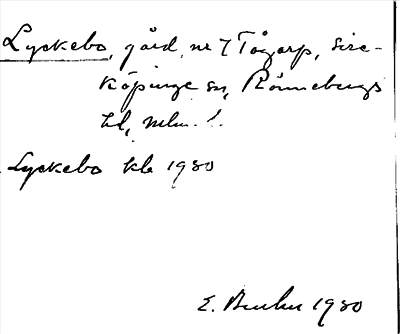 Lyckebo, gård, nr 7 Tågarp, Sire-
köpinge sn, Rönnebergs
hd, Mlm. l.
Lyckebo kb 1930
E. 1930